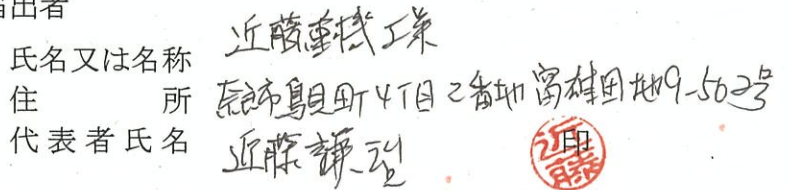 届出者
氏名又は名称 近藤重機工業
住所 奈良市鳥見町4丁目2番地富雄団地9-502号
代表者氏名 近藤謙 印
近藤